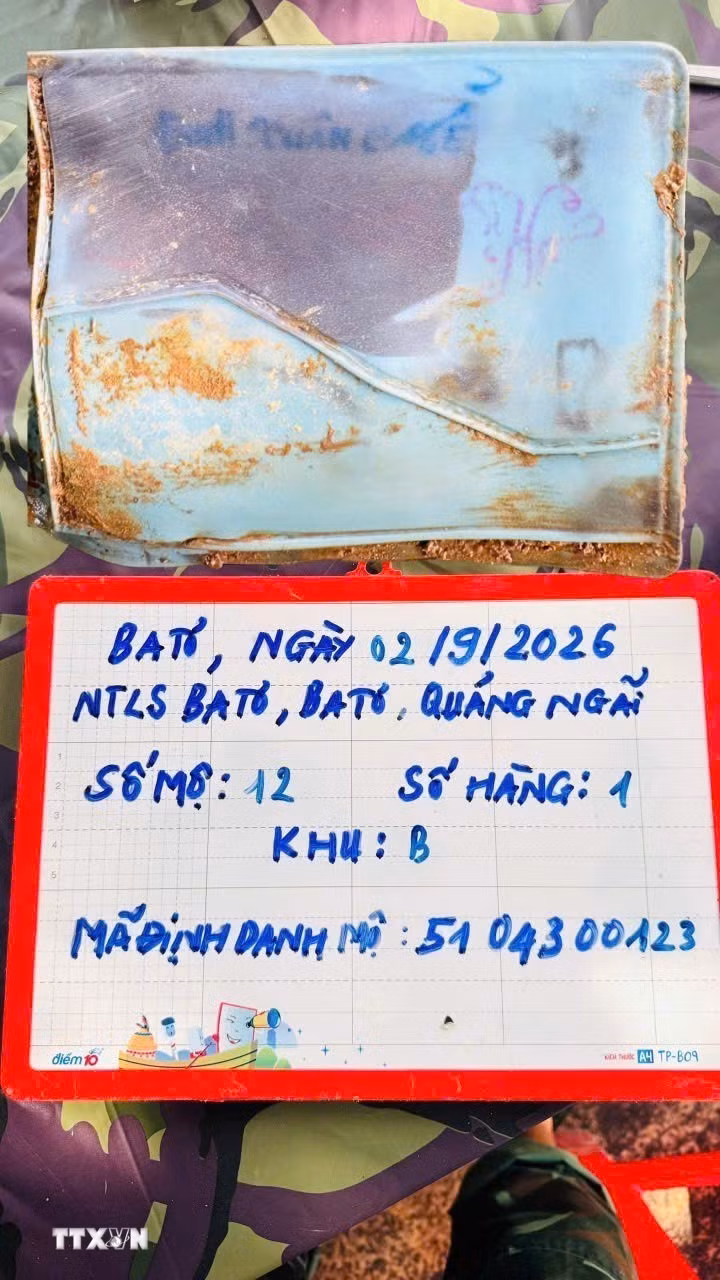 BATƠ, NGÀY 02/9/2026
NTLS BATƠ, BATƠ, QUẢNG NGÃI
SỐ MỘ: 12 SỐ HÀNG: 1
KHU: B
MÃ ĐỊNH DANH MỘ: 5104300123
1
2
3
4
5
điểm 10
KÍCH THƯỚC A4 TP-B09
TTXVN